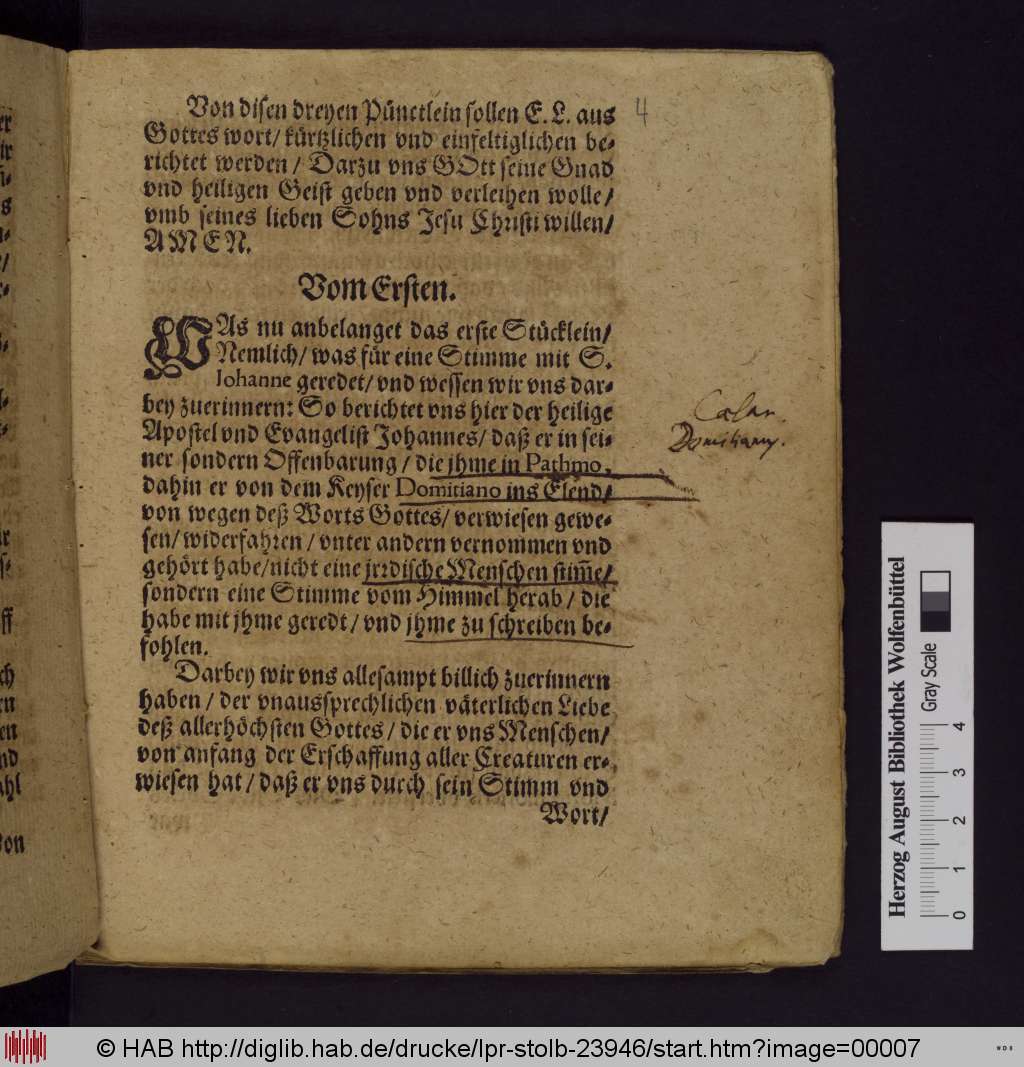 Von disen dreyen Pünctlein sollen E. L. aus
Gottes wort/ kürtzlichen vnd einfeltiglichen be-
richtet werden / Darzu vns GOtt seine Gnad
vnd heiligen Geist geben vnd verleihen wolle/
vmb seines lieben Sohns Jesu Christi willen/
AMEN.
4
Vom Ersten.
WAs nu anbelanget das erste Stücklein/
Nemlich/ was für eine Stimme mit S.
Iohanne geredet/ vnd wessen wir vns dar-
bey zuerinnern: So berichtet vns hier der heilige
Apostel vnd Evangelist Johannes/ daß er in sei-
ner sondern Offenbarung / die jhme in Pathmo,
dahin er von dem Keyser Domitiano ins Elend/
von wegen deß Worts Gottes/ verwiesen gewe-
sen/ widerfahren / vnter andern vernommen vnd
gehört habe/ nicht eine jrrdische Menschen stim̃e/
sondern eine Stimme vom Himmel herab / die
habe mit jhme geredt/ vnd jhme zu schreiben be-
fohlen.
Darbey wir vns allesampt billich zuerinnern
haben / der vnaussprechlichen väterlichen Liebe
deß allerhöchsten Gottes / die er vns Menschen/
von anfang der Erschaffung aller Creaturen er-
wiesen hat / daß er vns durch sein Stimm vnd
Wort/
Domitianus.
er
ir
s
n-
/
r-
ff
ch
rn
en
nd
ahl
Von
Herzog August Bibliothek Wolfenbüttel
Gray Scale
0 1 2 3 4
© HAB http://diglib.hab.de/drucke/lpr-stolb-23946/start.htm?image=00007